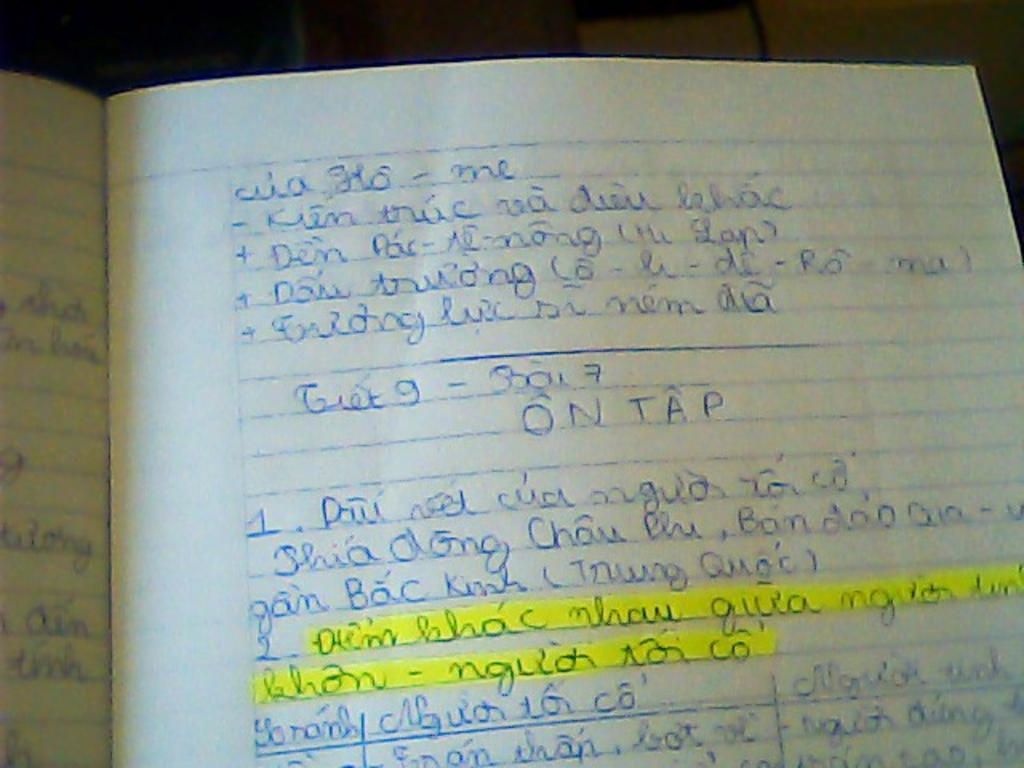 của Hô - me
- Kiến trúc và điêu khắc
+ Đền Pác-tê-nông (Hi Lạp)
+ Đấu trường (Cô - li - dê - Rô - ma)
+ Tượng lực sĩ ném đĩa
Tiết 9 - Bài 7
ÔN TẬP
1. Dấu vết của người tối cổ
Phía đông Châu Phi, Bán đảo Gia -
gần Bắc Kinh (Trung Quốc)
2. Điểm khác nhau giữa người tinh
khôn - người tối cổ
So sánh Người tối cổ Người tinh
Trán thấp, bợt về - người đứng
trán cao,
tương
đến
tính